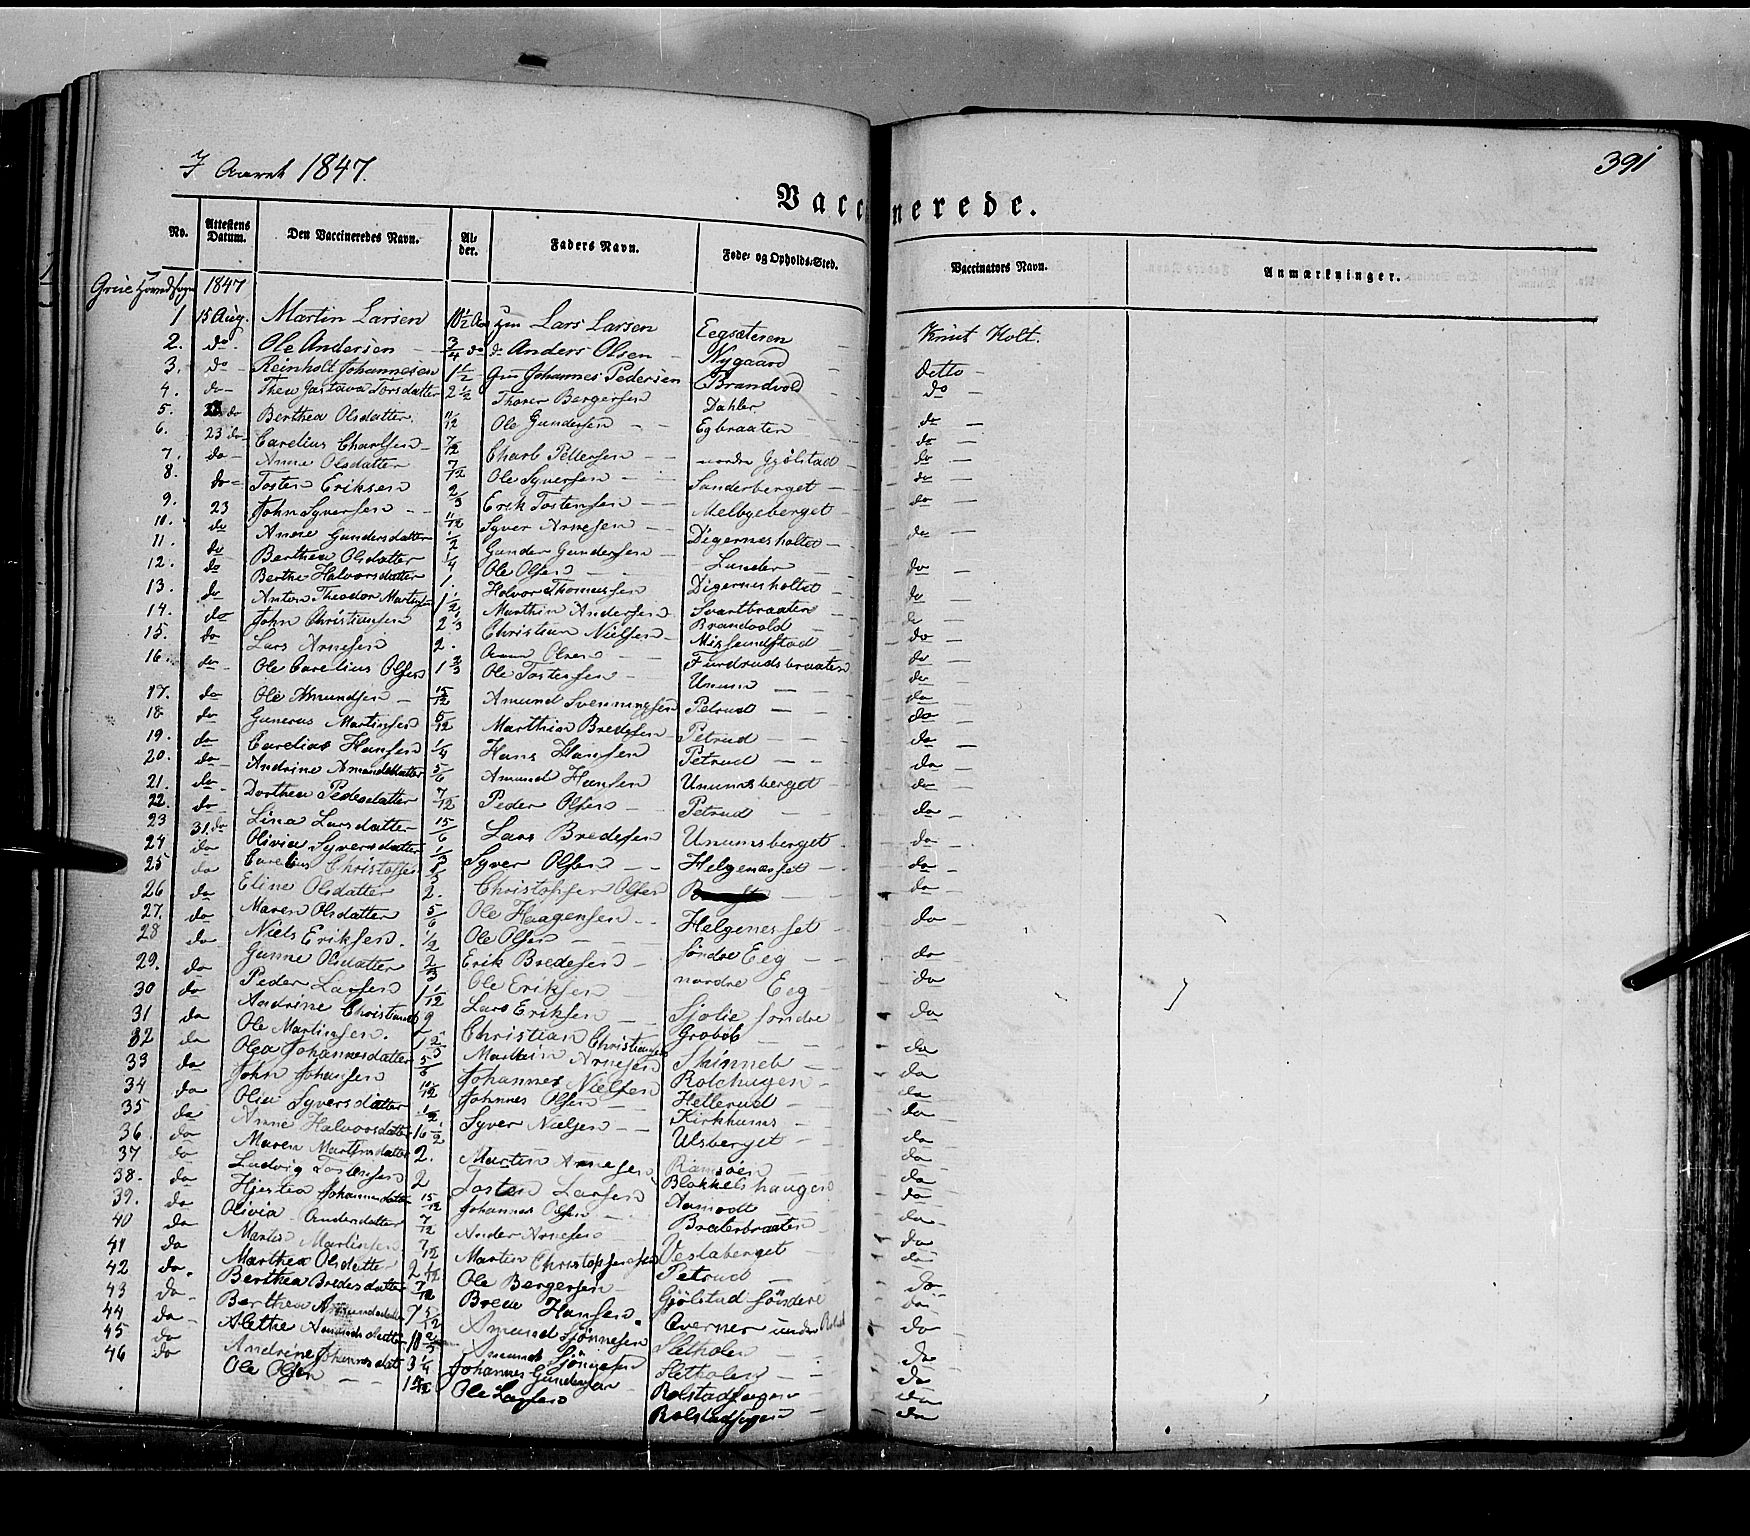 I Aaret 1847.
391
Vaccinerede.
No. Attestens Datum. Den Vaccineredes Navn. Alder. Faders Navn. Føde- og Opholds-Sted. Vaccinators Navn. Anmærkninger.
Grue Hovedsogn 1847
1 15 Aug. Martin Larsen 10 1/2 Lars Larsen Eegsæteren Knut Holt.
2. do. Ole Andersen 3/4 do Anders Olsen Nygaard Detto
3. do Reinholt Johannesen 1 1/2 Johannes Pedersen Brandvold do
4. do Thea Gustava Torsdatter 2 1/2 Thorer Bergersen Dahler do
5. do Berthea Olsdatter. 11/12 Ole Gundersen Egbraaten do
6. 23 do Carelius Charlsen 7/12 Charl Pettersen nordre Gjølstad do
7. do Anne Olsdatter 7/12 Ole Syversen Sanderberget do
8. do Tosten Eriksen 2/3 Erik Tostensen Melbyeberget do
9. 23 John Syversen 11/12 Syver Arnesen Digernesholtet do
10. do Anne Gundersdatter 1/2 Gunder Gundersen Lunder do
11. do Berthea Olsdatter 1/4 Ole Olsen Digernesholtet do
12. do Berthe Halvorsdatter 1. Halvor Thomassen Svartbraaten
13. do Anton Theodor Martinsen 1 1/2 Marthin Andersen Brandvold do
14. do John Christiansen 2 1/3 Christian Nielsen do
15. do Lars Arnesen 2. Furdrudsbraaten do
16. do Ole Carelius Olsen 1 2/3 Ole Tostensen Unum do
17. do Ole Amundsen 15/12 Amund Svenningsen Petrud do
18 do Gunerus Martinsen 5/12 Marthin Bredesen Petrud do
19. do Carelius Hansen 1/4 Hans Hansen Petrud do
20. do Andrine Amundsdatter 5/6 Amund Hansen Unumsberget do
21. do Dorthea Pedersdatter 7/12 Peder Olsen Petrud do
22. do Lina Larsdatter 15/6 Lars Bredesen Unumsberget do
23 31. do Olivia Syversdatter 1/3 Syver Olsen Helgenesset do
24 do Carelius Christoffer Christopher Olsen do
25 do Eline Olsdatter 2. Ole Haagensen Helgenesset do
26 do Maren Olsdatter 5/6 Ole Olsen søndre Eeg do
27. do Niels Eriksen. 1/2 Erik Bredesen nordre Eeg do
28 do Gunne Olsdatter 2/3 Ole Eriksen Sjolie søndre do
29. do Peder Larsen 1 1/12 Lars Eriksen do
30 do Andrine Christiansd Christian Christiansen do
31 do Ole Martinsen. Martin Arnesen do
32 do Olea Johannesdatter Johannes Nielsen do
33 do John Johansen 10/12 Johannes Olsen Hellerud do
34 do Olea Syversdatter 1/2 Syver Nielsen Kirkhums do
35 do Anne Halvorsdatter 16 1/2 Ulsberget do
36. do Maren Martinsdatter 2. Martin Arnesen do
37 do Ludvig Tostensen 2 Tosten Larsen Blokkelshaugen do
38. do Johannesdatter 15/12 Johannes Olsen Aamodt do
39. do Olivia Andersdatter 7/12 Ander Arnesen Braterbraaten do
40 do Martin Martinsen 7/12 Martin Christophersen Vestaberget do
41 do Marthea Olsdatter 2 1/12 Ole Bergersen Petrud do
42 do. Berthea Bredesdatter 7/12 Hansen. Gjølstad søndere do
43 do Berthea Amundsdatter 7 5/12 Amund Sjønnesen Overnes under do
44 do Alethe Amundsdatter Amund Sjønnesen Sletholen do
45 do Andrine Johannesdat 3 1/4 Johannes Gundersen Sletholen do
46 do Ole Olsen Ole Larsen Rolstadsagen do
Rolstadsagen do